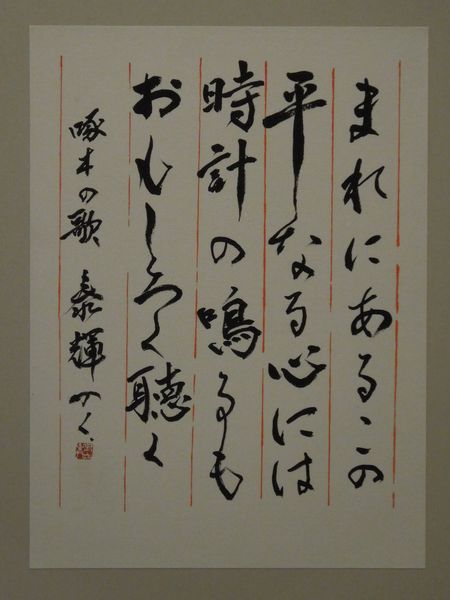 まれにあるこの
平なる心には
時計の鳴るも
おもしろく聴く
啄木の歌 泰輝かく